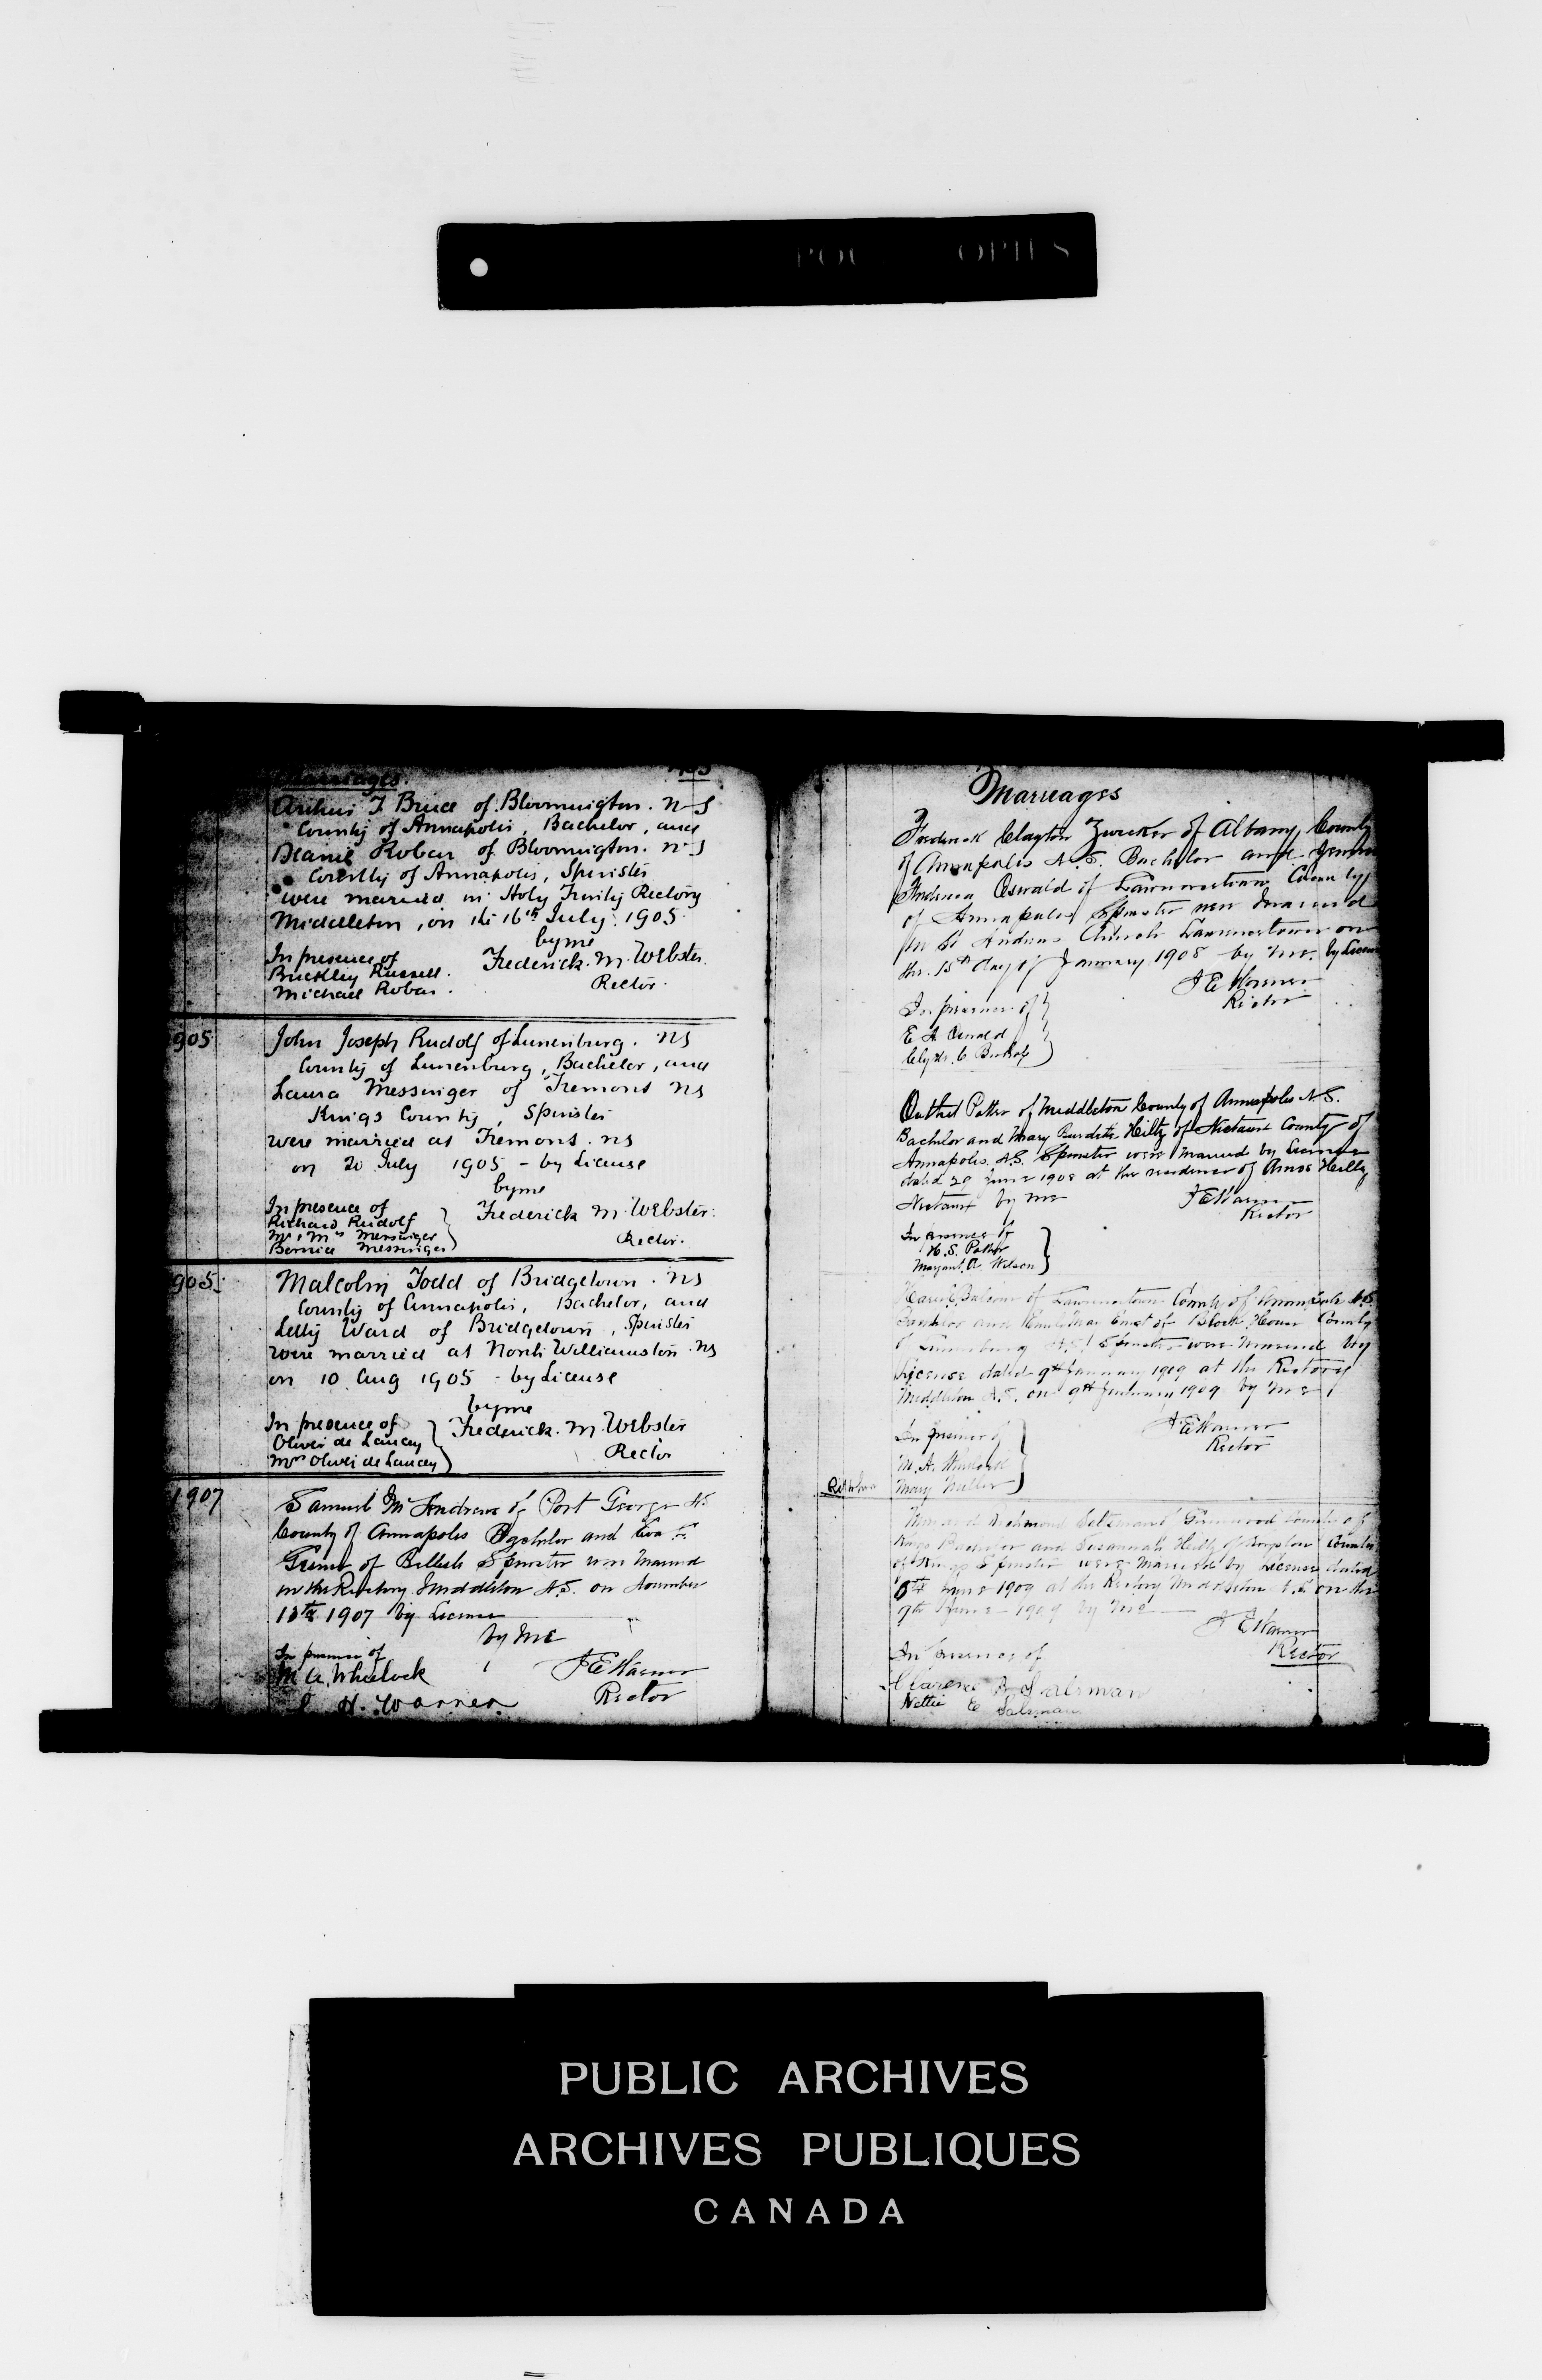 Marriages.
Arthur J Bruce of Bloomington. N S
County of Annapolis, Bachelor, and
Roban of Bloomington. N S
County of Annapolis, Spinster
were married in Holy Trinity Rectory
Middleton, on the 16th July. 1905.
by me
In presence of
Frederick. M. Webster.
Buckley Russell.
Rector.
Michael Roban.
905
John Joseph Rudolf of Lunenburg. NS
County of Lunenburg, Bachelor, and
Laura Messinger of Tremont NS
Kings County, Spinster
were married at Tremont. NS
on 20 July 1905 - by License
by me
In presence of
Richard Rudolf
Frederick M. Webster.
Mr & Mrs Messinger
Rector.
Bernice Messinger
905.
Malcolm Todd of Bridgetown. NS
County of Annapolis, Bachelor, and
Letty Ward of Bridgetown, Spinster
were married at North Williamston. NS
on 10 Aug 1905 - by License
by me
In presence of
Frederick. M. Webster
Oliver de Lancey
Mrs Oliver de Lancey
Rector
1907
Samuel McAndrews of Port George NS
County of Annapolis Bachelor and Eva
of Spinster were Married
in the Rectory Middleton N.S. on November
1907 by License
by me
In presence of
M A. Wheelock
J E Warner
H. Warner
Rector
Marriages
Frederick Clayton Zwicker of Albany, County
of Annapolis N.S. Bachelor and
Andrea Oswald of Lawrencetown County
of Annapolis Spinster were married
in St Andrews Church Lawrencetown on
the 15th day of January 1908 by me. by License
J E Warner
Rector
In presence of
E A Oswald
Clyde. C. Bishop
Outhit Potter of Middleton County of Annapolis N.S.
Bachelor and Mary Burdette Hiltz of Nictaux County of
Annapolis. N.S. Spinster were married by License
dated 29 June 1908 at the residence of Amos Hiltz
Nictaux by me
J E Warner
Rector
In presence of
H. S. Potter
Margaret. A. Wilson
Balcom of Lawrencetown County of Annapolis N.S.
Bachelor and of Block House County
of Lunenburg N.S. Spinster were Married by
License dated 9th January 1909 at the Rectory
Middleton N.S. on 9th January 1909 by me
J E Warner
Rector
In presence of
M. A. Wheelock
Mary Miller
Richmond Saltzman Greenwood County of
Kings Bachelor and Susannah Hiltz of Kingston County
of Kings Spinster were Married by License dated
June 1909 at the Rectory Middleton N.S. on the
9th June 1909 by me
J E Warner
Rector
In presence of
Clarence R Salsman
Nettie E Salsman
PUBLIC ARCHIVES
ARCHIVES PUBLIQUES
CANADA